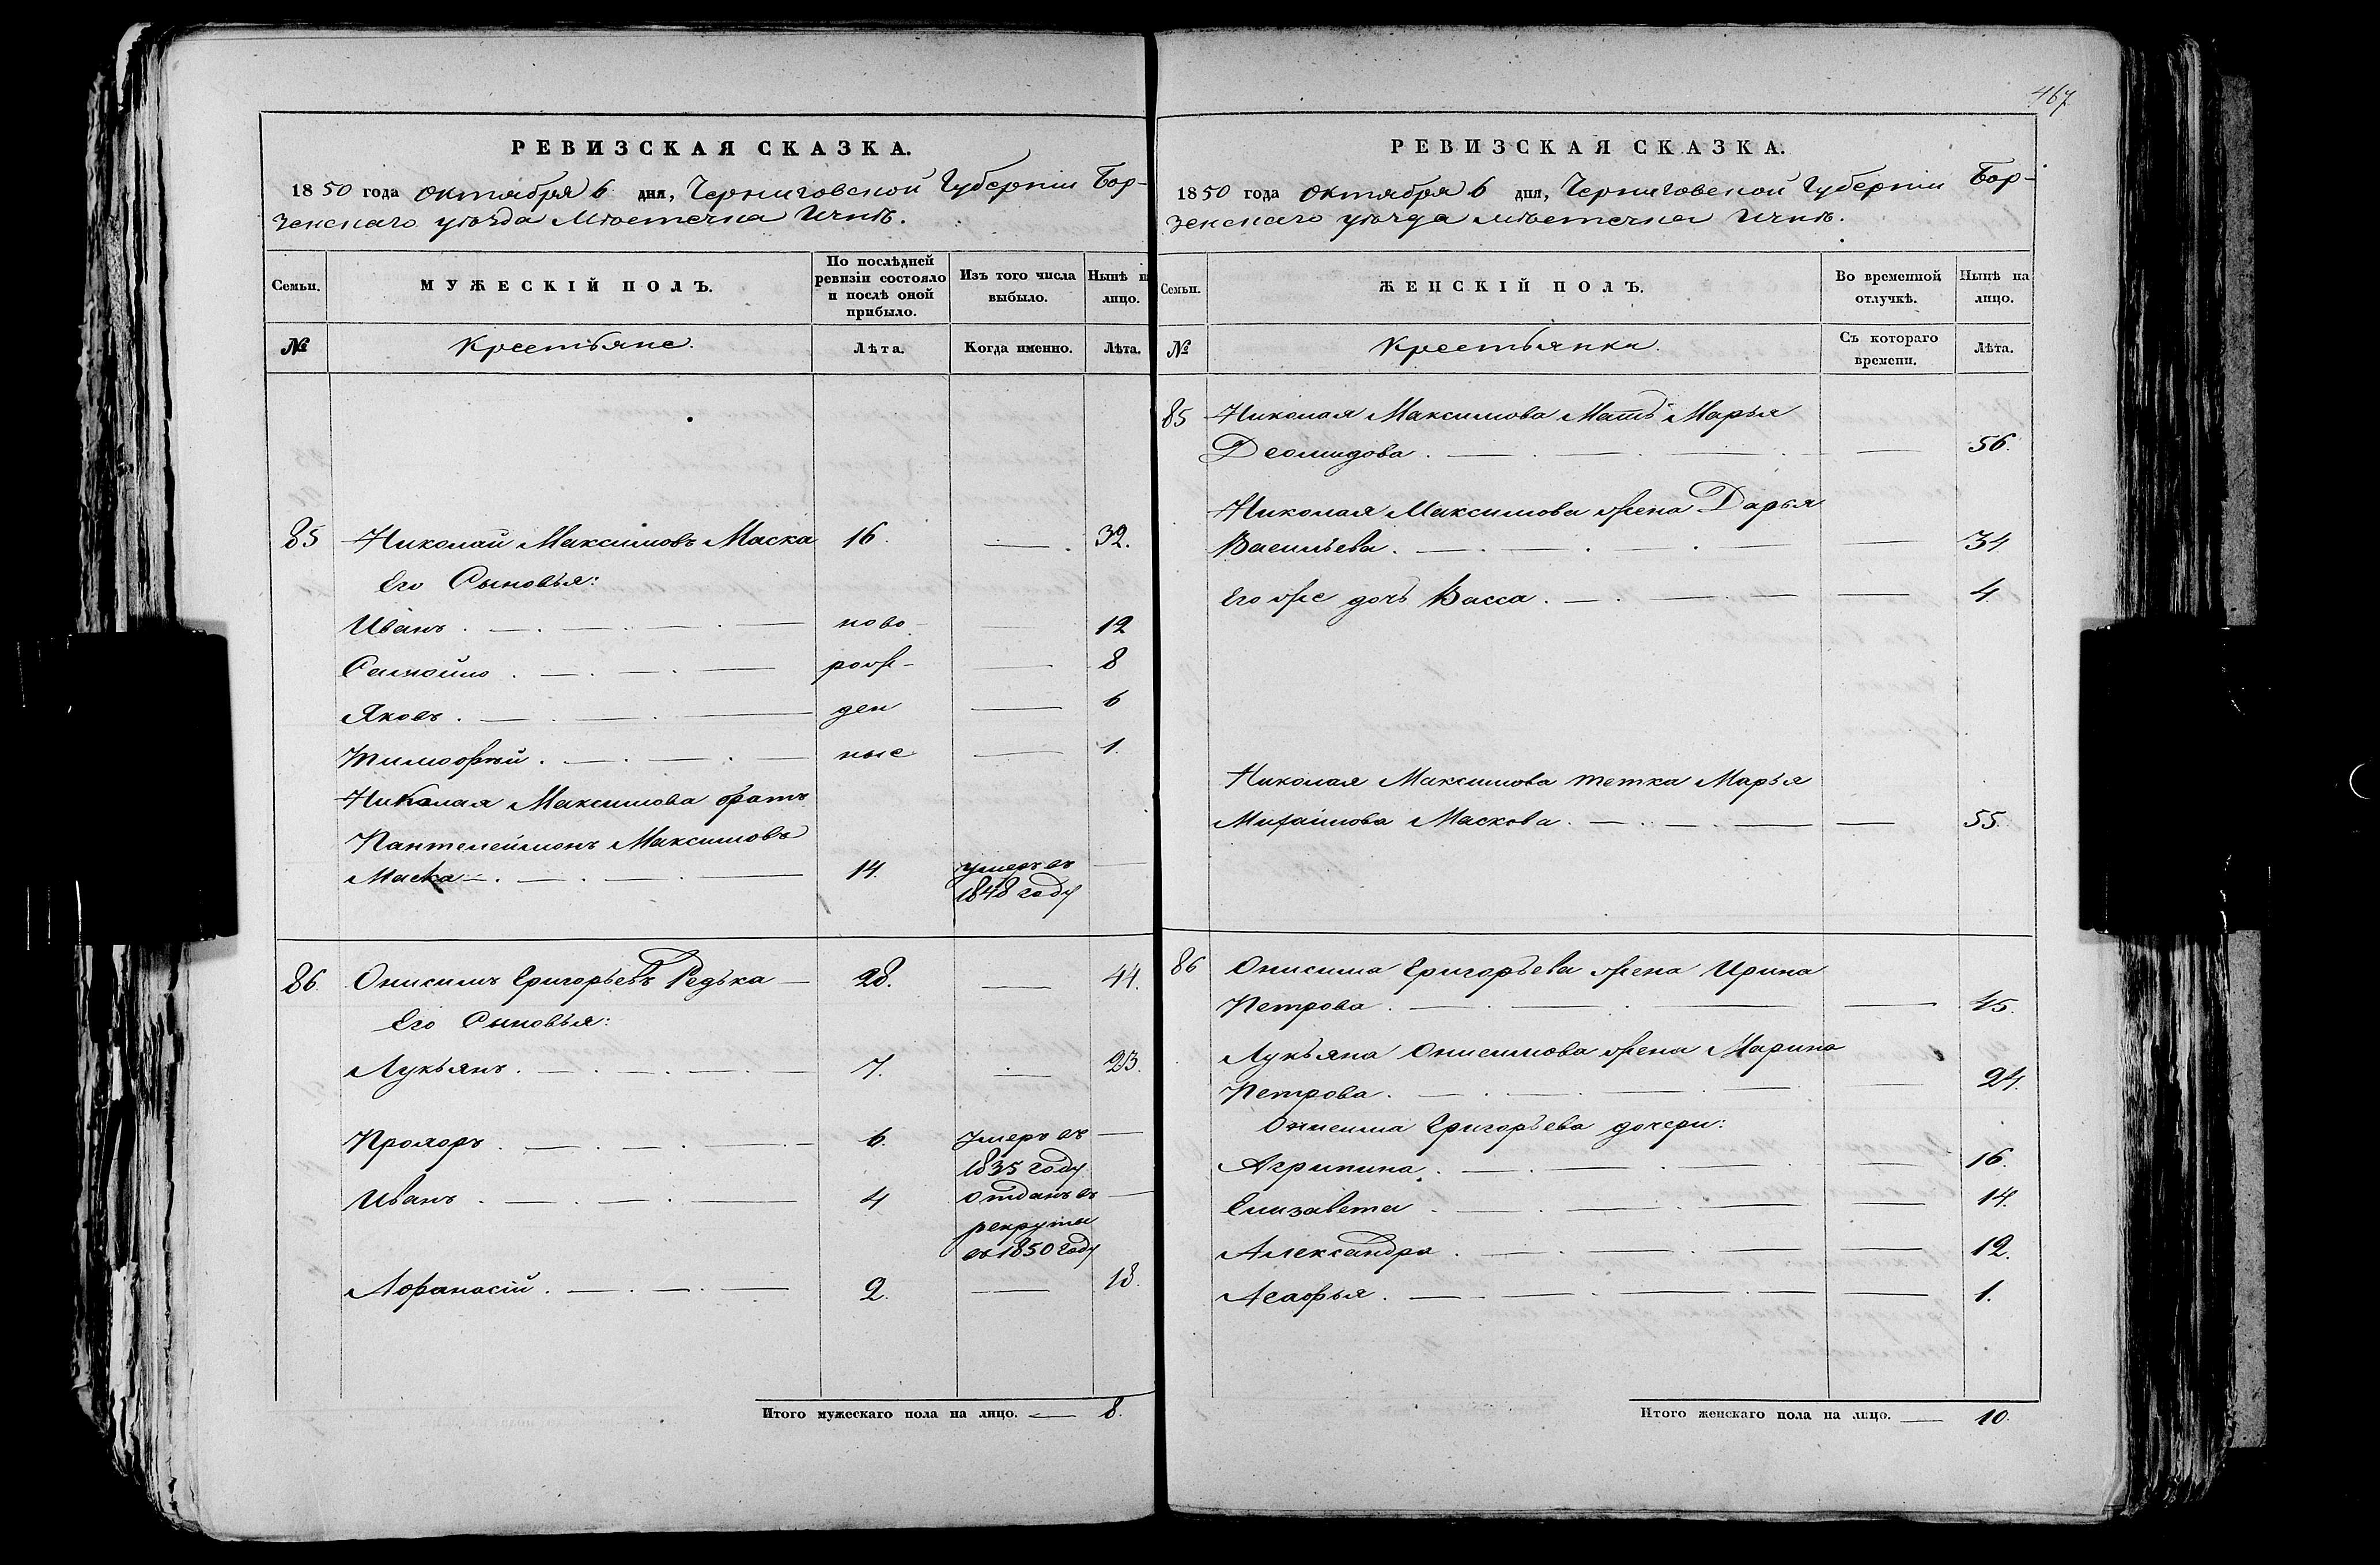 РЕВИЗСКАЯ СКАЗКА.
1850 года Октября 6 дня, Черниговской Губерніи Бор-
зенскаго уѣзда Мѣстечка Ични.
Семьи.
МУЖЕСКІЙ ПОЛЪ.
По послѣдней ревизіи состояло и послѣ оной прибыло.
Изъ того числа выбыло.
Нынѣ н лицо.
№
Крестьяне.
Лѣта.
Когда именно.
Лѣта.
85 Николай Максимовъ Маска 16. — 32.
Его Сыновья:
Иванъ. — ново- — 12
Самойло — рож- — 8
Яковъ. — ден — 6
Тимофѣй. — ные — 1.
Николая Максимова братъ
Пантелеймонъ Максимовъ
Маска — 14. умеръ въ —
1848 году
86. Онисимъ Григорьевъ Редька — 28. — 44.
Его Сыновья:
Лукьянъ. — 7. — 23.
Прохоръ. — 6. Умеръ въ —
1835 году
Иванъ. — 4 отданъ въ —
рекруты
въ 1850 году
Афанасій. — 2. — 18.
Итого мужескаго пола на лицо. — 8.
467
РЕВИЗСКАЯ СКАЗКА.
1850 года Октября 6 дня, Черниговской Губерніи Бор-
зенскаго уѣзда мѣстечка Ични.
Семьи.
ЖЕНСКІЙ ПОЛЪ.
Во временной отлучкѣ.
Нынѣ на лицо.
№
Крестьянки.
Съ котораго времени.
Лѣта.
85 Николая Максимова Мать Марья
Деомидова. — — 56.
Николая Максимова жена Дарья
Васильева. — — 34
Его же дочь Васса. — — 4.
Николая Максимова тетка Марья
Михайлова Маскова. — — 55.
86 Онисима Григорьева жена Ирина
Петрова. — — 45.
Лукьяна Онисимова жена Марина
Петрова. — — 24.
Онисима Григорьева дочери:
Агрипина. — — 16.
Елизавета — — 14.
Александра. — — 12.
Агафья. — — 1.
Итого женскаго пола на лицо. — 10.